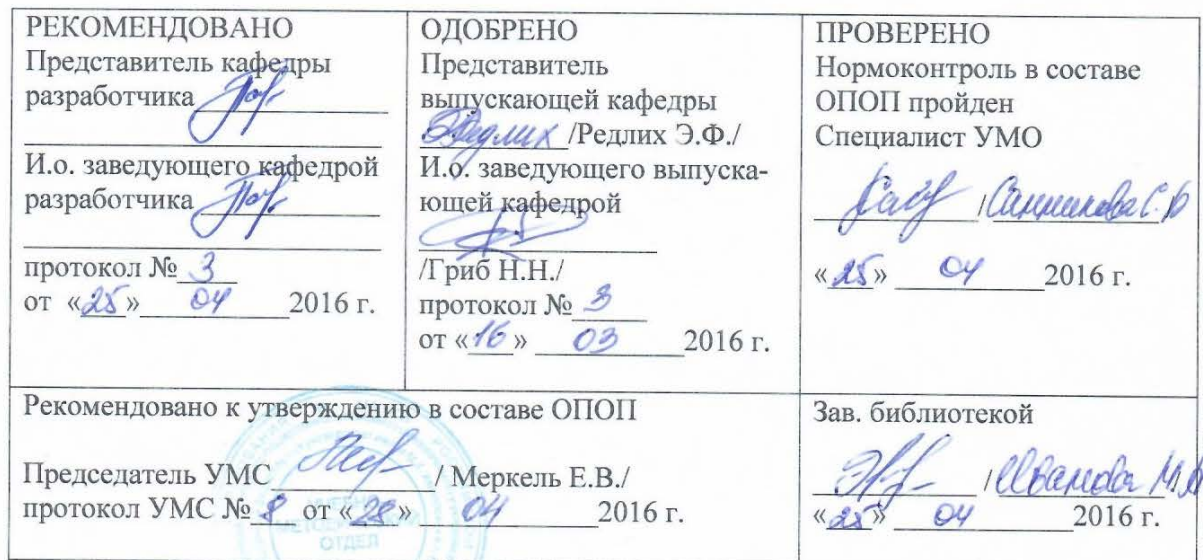 РЕКОМЕНДОВАНО
Представитель кафедры
разработчика
И.о. заведующего кафедрой
разработчика
протокол № 3
от «25» 04 2016 г.
ОДОБРЕНО
Представитель
выпускающей кафедры
Редлих /Редлих Э.Ф./
И.о. заведующего выпуска-
ющей кафедрой
/Гриб Н.Н./
протокол № 3
от «16» 03 2016 г.
ПРОВЕРЕНО
Нормоконтроль в составе
ОПОП пройден
Специалист УМО
/ Санникова С.Ю
«25» 04 2016 г.
Рекомендовано к утверждению в составе ОПОП
Председатель УМС / Меркель Е.В./
протокол УМС № 8 от «28» 04 2016 г.
ОТДЕЛ
Зав. библиотекой
/ Иванова М.
«25» 04 2016 г.